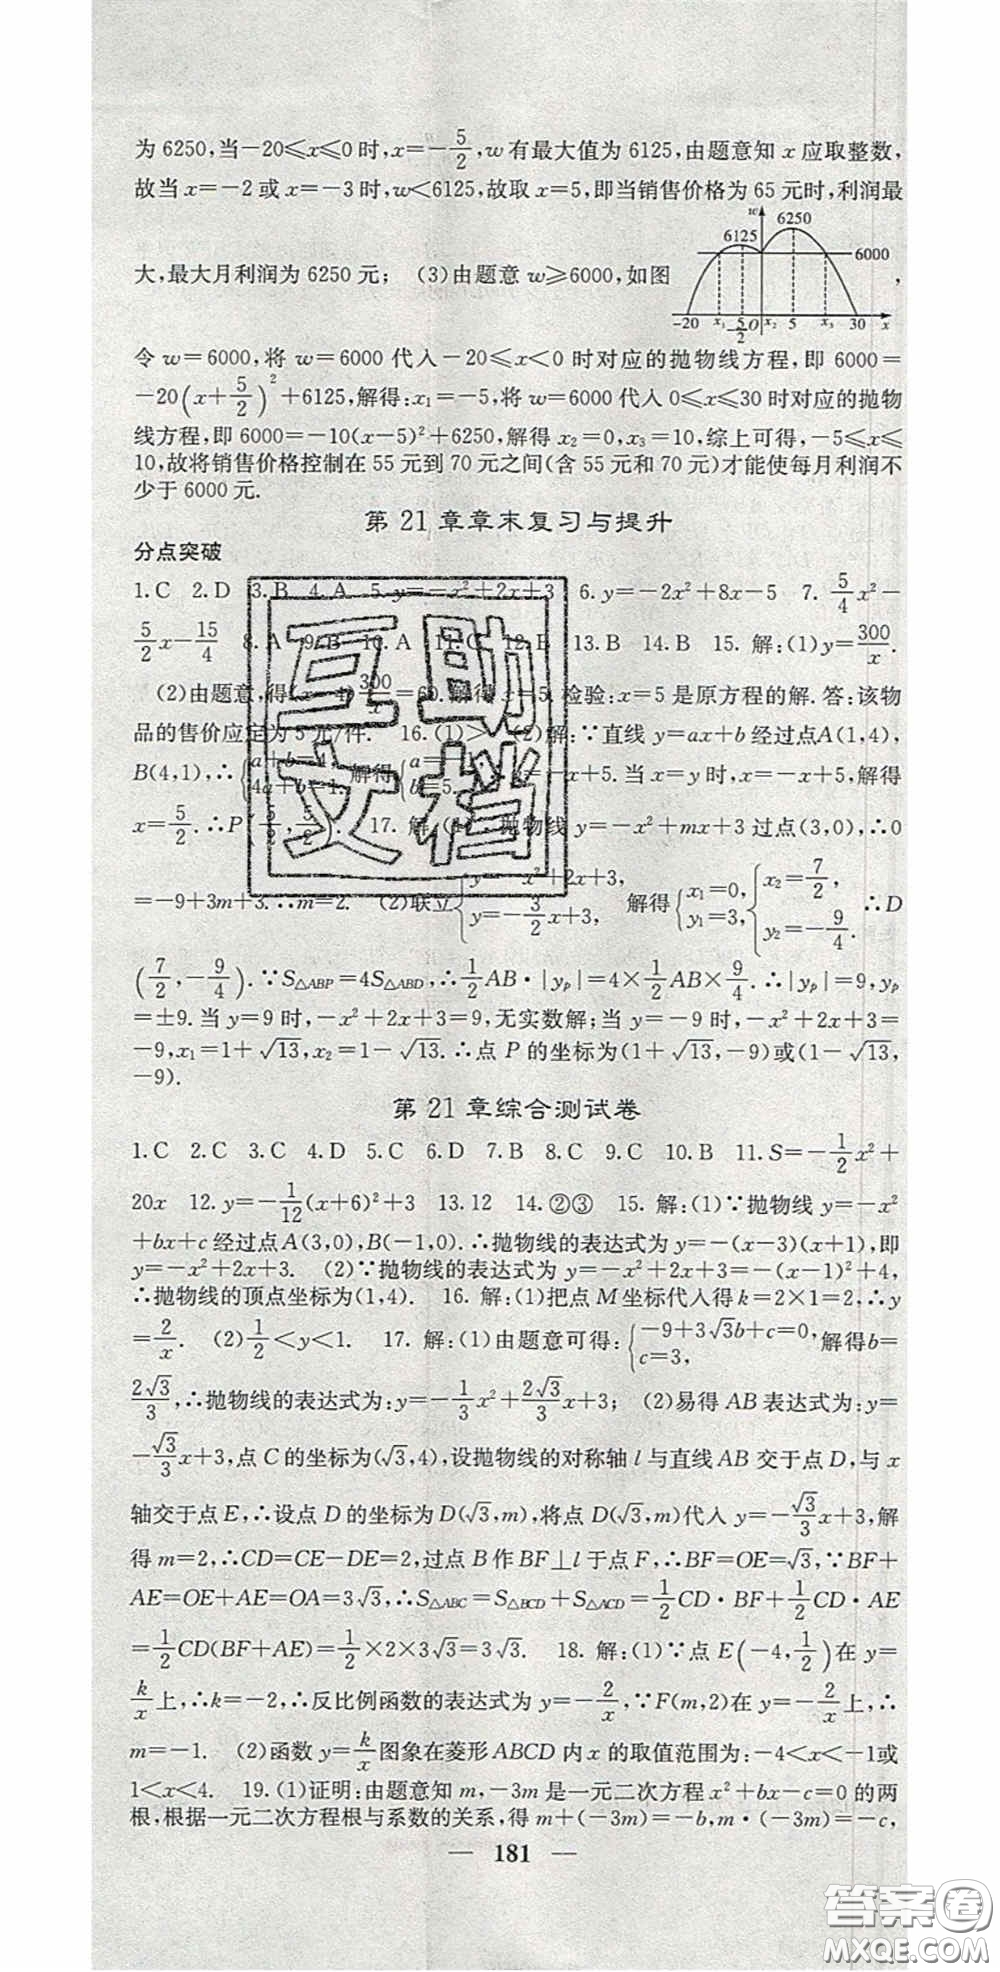 为6250,当-20≤x≤0时,x=-5/2,w有最大值为6125,由题意知x应取整数,
故当x=-2或x=-3时,w<6125,故取x=5,即当销售价格为65元时,利润最
大,最大月利润为6250元; (3)由题意w≥6000,如图
w 6250 6125 6000 -20 x₁ -5/2 O x₂ 5 x₃ 30 x ,
令w=6000,将w=6000代入-20≤x<0时对应的抛物线方程,即6000=
-20(x+5/2)²+6125,解得:x₁=-5,将w=6000代入0≤x≤30时对应的抛物
线方程,即6000=-10(x-5)²+6250,解得x₂=0,x₃=10,综上可得,-5≤x≤
10,故将销售价格控制在55元到70元之间(含55元和70元)才能使每月利润不
少于6000元.
第21章章末复习与提升
分点突破
1.C 2.D 3.B 4.A 5.y=-x²+2x+3 6.y=-2x²+8x-5 7.5/4x²-
5/2x-15/4 8.A 9.B 10.A 11.C 12. 13.B 14.B 15.解:(1)y=300/x.
(2)由题意,得(x-4)300/x=60.解得x=5.检验:x=5是原方程的解.答:该物
品的售价应定为5元/件. 16.(1)> (2)解:∵直线y=ax+b经过点A(1,4),
B(4,1),∴{a+b=4, 4a+b=1. 解得{a=-1, b=5. ∴y=-x+5.当x=y时,x=-x+5,解得
x=5/2.∴P(5/2,5/2). 17.解:(1)∵抛物线y=-x²+mx+3过点(3,0),∴0
=-9+3m+3.∴m=2. (2)联立{y=-x²+2x+3, y=-3/2x+3, 解得{x₁=0, y₁=3, {x₂=7/2, y₂=-9/4. ∴D
(7/2,-9/4).∵S△ABP=4S△ABD,∴1/2AB·|yₚ|=4×1/2AB×9/4.∴|yₚ|=9,yₚ
=±9.当y=9时,-x²+2x+3=9,无实数解;当y=-9时,-x²+2x+3=
-9,x₁=1+√13,x₂=1-√13.∴点P的坐标为(1+√13,-9)或(1-√13,
-9).
第21章综合测试卷
1.C 2.C 3.C 4.D 5.C 6.D 7.B 8.C 9.C 10.B 11.S=-1/2x²+
20x 12.y=-1/12(x+6)²+3 13.12 14.②③ 15.解:(1)∵抛物线y=-x²
+bx+c经过点A(3,0),B(-1,0).∴抛物线的表达式为y=-(x-3)(x+1),即
y=-x²+2x+3. (2)∵抛物线的表达式为y=-x²+2x+3=-(x-1)²+4,
∴抛物线的顶点坐标为(1,4). 16.解:(1)把点M坐标代入得k=2×1=2,∴y
=2/x. (2)1/2<y<1. 17.解:(1)由题意可得:{-9+3√3b+c=0, c=3, 解得b=
2√3/3,∴抛物线的表达式为:y=-1/3x²+2√3/3x+3; (2)易得AB表达式为:y=
-√3/3x+3,点C的坐标为(√3,4),设抛物线的对称轴l与直线AB交于点D,与x
轴交于点E,∴设点D的坐标为D(√3,m),将点D(√3,m)代入y=-√3/3x+3,解
得m=2,∴CD=CE-DE=2,过点B作BF⊥l于点F,∴BF=OE=√3,∵BF+
AE=OE+AE=OA=3√3,∴S△ABC=S△BCD+S△ACD=1/2CD·BF+1/2CD·AE
=1/2CD(BF+AE)=1/2×2×3√3=3√3. 18.解:(1)∵点E(-4,1/2)在y=
k/x上,∴k=-2,∴反比例函数的表达式为y=-2/x,∵F(m,2)在y=-2/x上,∴
m=-1. (2)函数y=k/x图象在菱形ABCD内x的取值范围为:-4<x<-1或
1<x<4. 19.(1)证明:由题意知m,-3m是一元二次方程x²+bx-c=0的两
根,根据一元二次方程根与系数的关系,得m+(-3m)=-b,m·(-3m)=-c,
— 181 —
互助
文档
答案圈
MXQE.COM